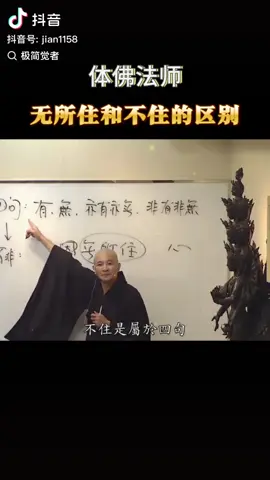 抖音
抖音号: jian1158
极简觉者
体佛法师
无所住和不住的区别
句: 有、無、亦有亦無、非有非無
無所住 心
不住是屬於四句